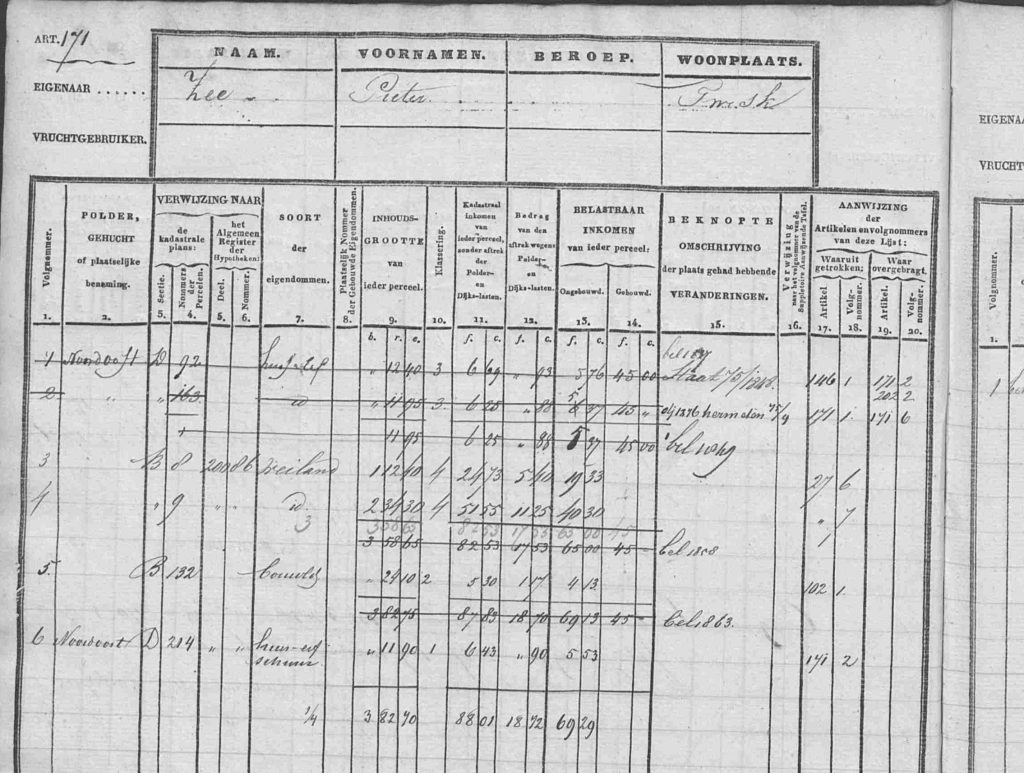 ART. 171
NAAM. VOORNAMEN. BEROEP. WOONPLAATS.
EIGENAAR ...... Zee Pieter
VRUCHTGEBRUIKER.
EIGENA
VRUCHT
Volgnommer. 1.
POLDER, GEHUCHT of plaatselijke benaming. 2.
VERWIJZING NAAR
de kadastrale plans:
Sectie. 3.
Nommers der Perceelen. 4.
het Algemeen Register der Hypotheken:
Deel. 5.
Nommer. 6.
SOORT der eigendommen. 7.
Plaatselijke Nommer der Gebouwde Eigendommen. 8.
INHOUDS-GROOTTE van ieder perceel. 9.
Klassering. 10.
Kadastraal inkomen van ieder perceel, zonder aftrek der Polder- en Dijks-lasten. 11.
Bedrag van den aftrek wegens Polder- en Dijks-lasten. 12.
BELASTBAAR INKOMEN van ieder perceel:
Ongebouwd. 13.
Gebouwd. 14.
BEKNOPTE OMSCHRIJVING der plaats gehad hebbende VERANDERINGEN. 15.
Verwijzing naar het volgnommer van de Suppletoire Aanwijzende Tafel. 16.
AANWIJZING der Artikelen en volgnommers van deze Lijst:
Waaruit getrokken;
Artikel 17.
Volg-nommer. 18.
Waar overgebragt.
Artikel 19.
Volg-nommer. 20.
Volgnommer. 1.
b. r. c. f. c. f. c. f. c. f. c.
1 Noordoost D 92 " 12 40 3 6 69 " 93 5 76 45 00 Staat 75/1848 146 1 171 2
202 2
2 " " 163 id " 11 95 3 6 25 " 88 5 37 45 " 171 1 171 6
11 95 6 25 " 88 5 37 45 00
3 B 8 200 86 Weiland 1 12 40 4 24 73 5 40 19 33 27 6
4 " 9 " " id. 2 34 30 4 51 55 11 25 40 30 " 7
3
3 58 65 82 53 17 53 65 00 45 bel 1858
5. B 132 " 24 10 2 5 30 1 17 4 13 102 1
3 82 75 87 83 18 70 69 13 45 bel 1863.
6 Noordoost D 214 " " huis erf schuur " 11 90 1 6 43 " 90 5 53 171 2
1/4 3 82 70 88 01 18 72 69 29
1